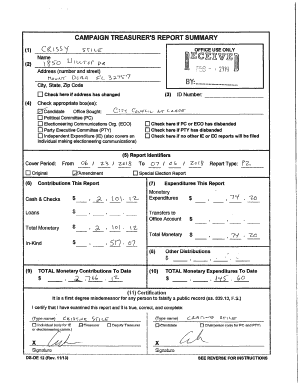 CAMPAIGN TREASURER'S REPORT SUMMARY
(1) CRISSY STILE
Name
OFFICE USE ONLY
RECEIVED
(2) 1850 HILLTOP DR
Address (number and street)
MOUNT DORA FL 32757
City, State, Zip Code
BY:
Check here if address has changed
(3) ID Number:
(4) Check appropriate box(es):
Candidate Office Sought: CITY COUNCIL AT LARGE
Political Committee (PC)
Electioneering Communications Org. (ECO)
Check here if PC or ECO has disbanded
Party Executive Committee (PTY)
Check here if PTY has disbanded
Independent Expenditure (IE) (also covers an individual making electioneering communications)
Check here if no other IE or EC reports will be filed
(5) Report Identifiers
Cover Period: From 06 / 23 / 2018 To 07 / 06 / 2018 Report Type: P2
Original Amendment Special Election Report
(6) Contributions This Report
(7) Expenditures This Report
Cash & Checks $ 2,101.12
Monetary Expenditures $ 74.20
Loans $
Transfers to Office Account $
Total Monetary $ 2,101.12
Total Monetary $ 74.20
In-Kind $
(8) Other Distributions
$
(9) TOTAL Monetary Contributions To Date
$ 2,766.12
(10) TOTAL Monetary Expenditures To Date
$ 145.60
(11) Certification
It is a first degree misdemeanor for any person to falsify a public record (ss. 839.13, F.S.)
I certify that I have examined this report and it is true, correct, and complete:
(Type name) CRISTINE STILE
(Type name) CRISTINE STILE
Individual (only for IE or electioneering comm.) Treasurer Deputy Treasurer
Candidate Chairperson (only for PC and PTY)
X
X
Signature
Signature
DS-DE 12 (Rev. 11/13)
SEE REVERSE FOR INSTRUCTIONS